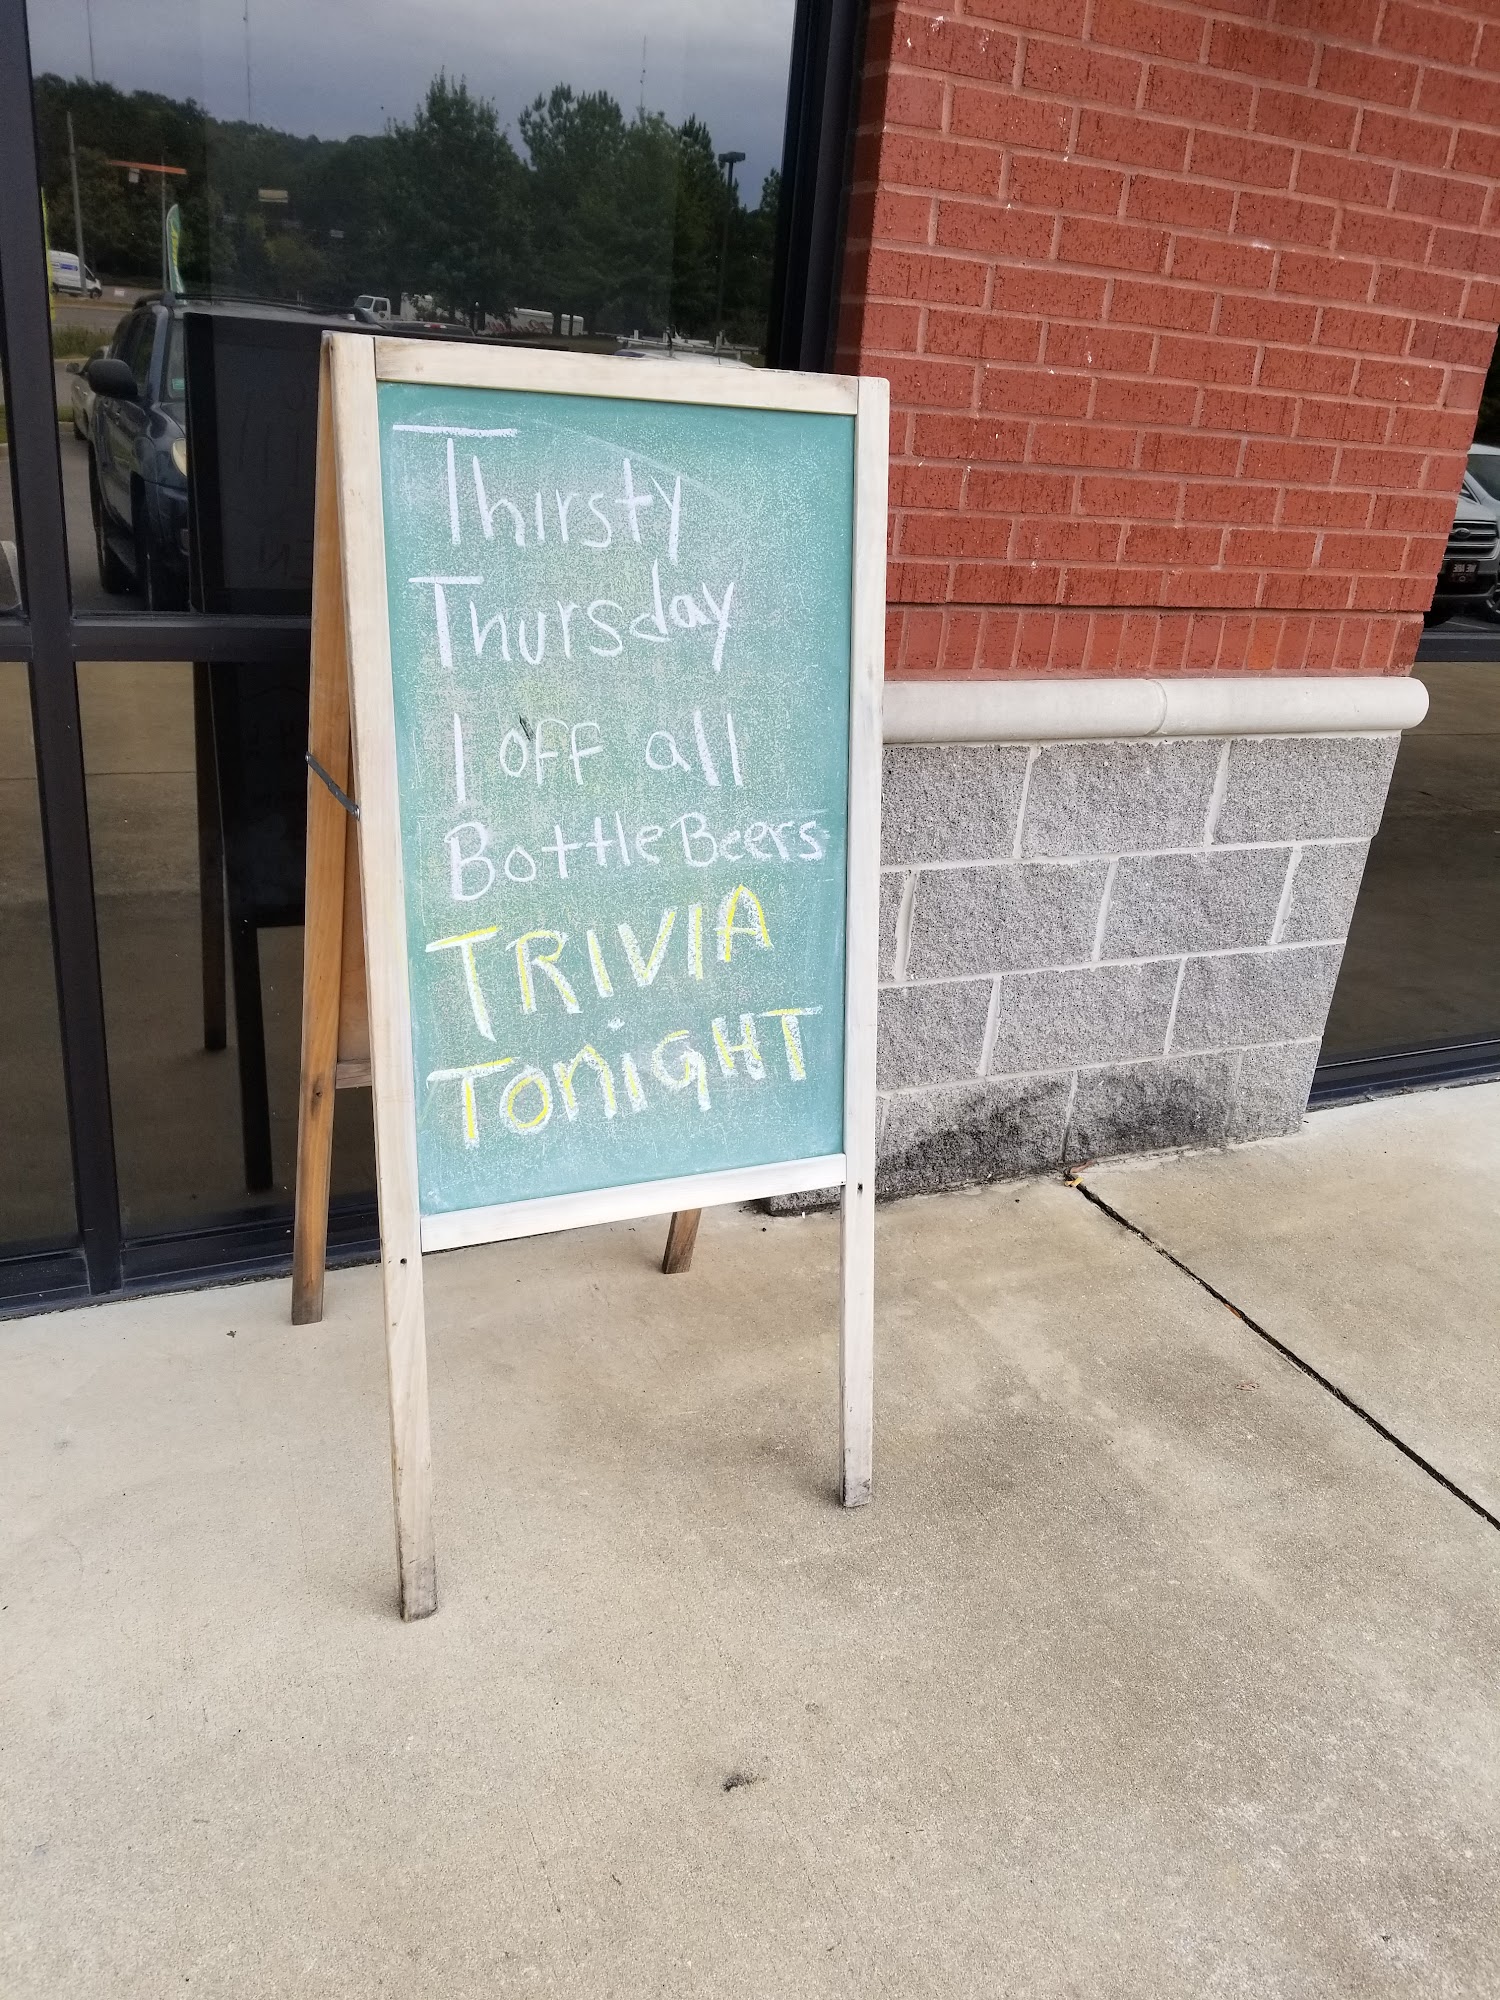 Thirsty
Thursday
1 off all
Bottle Beers
TRIVIA
TONiGHT